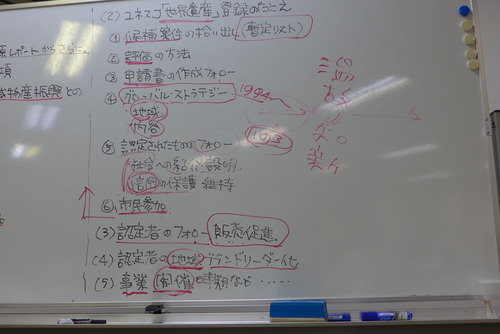 項レポートからさらに
項
域物産振興との
(2) ユネスコ「世界遺産」登録のたとえ
① 候補案件の拾い出し(暫定リスト)
② 評価の方法
③ 申請書の作成フォロー
④ グローバル・ストラテジー 1994〜
地域
内容
⑤ 認定されたもののフォロー
社会への紹介、説明
信用の保護 維持
⑥ 市民参加
(3) 認定者のフォロー 販売促進
(4) 認定者の地域ブランドリーダー化
(5) 事業 開催の時期など……